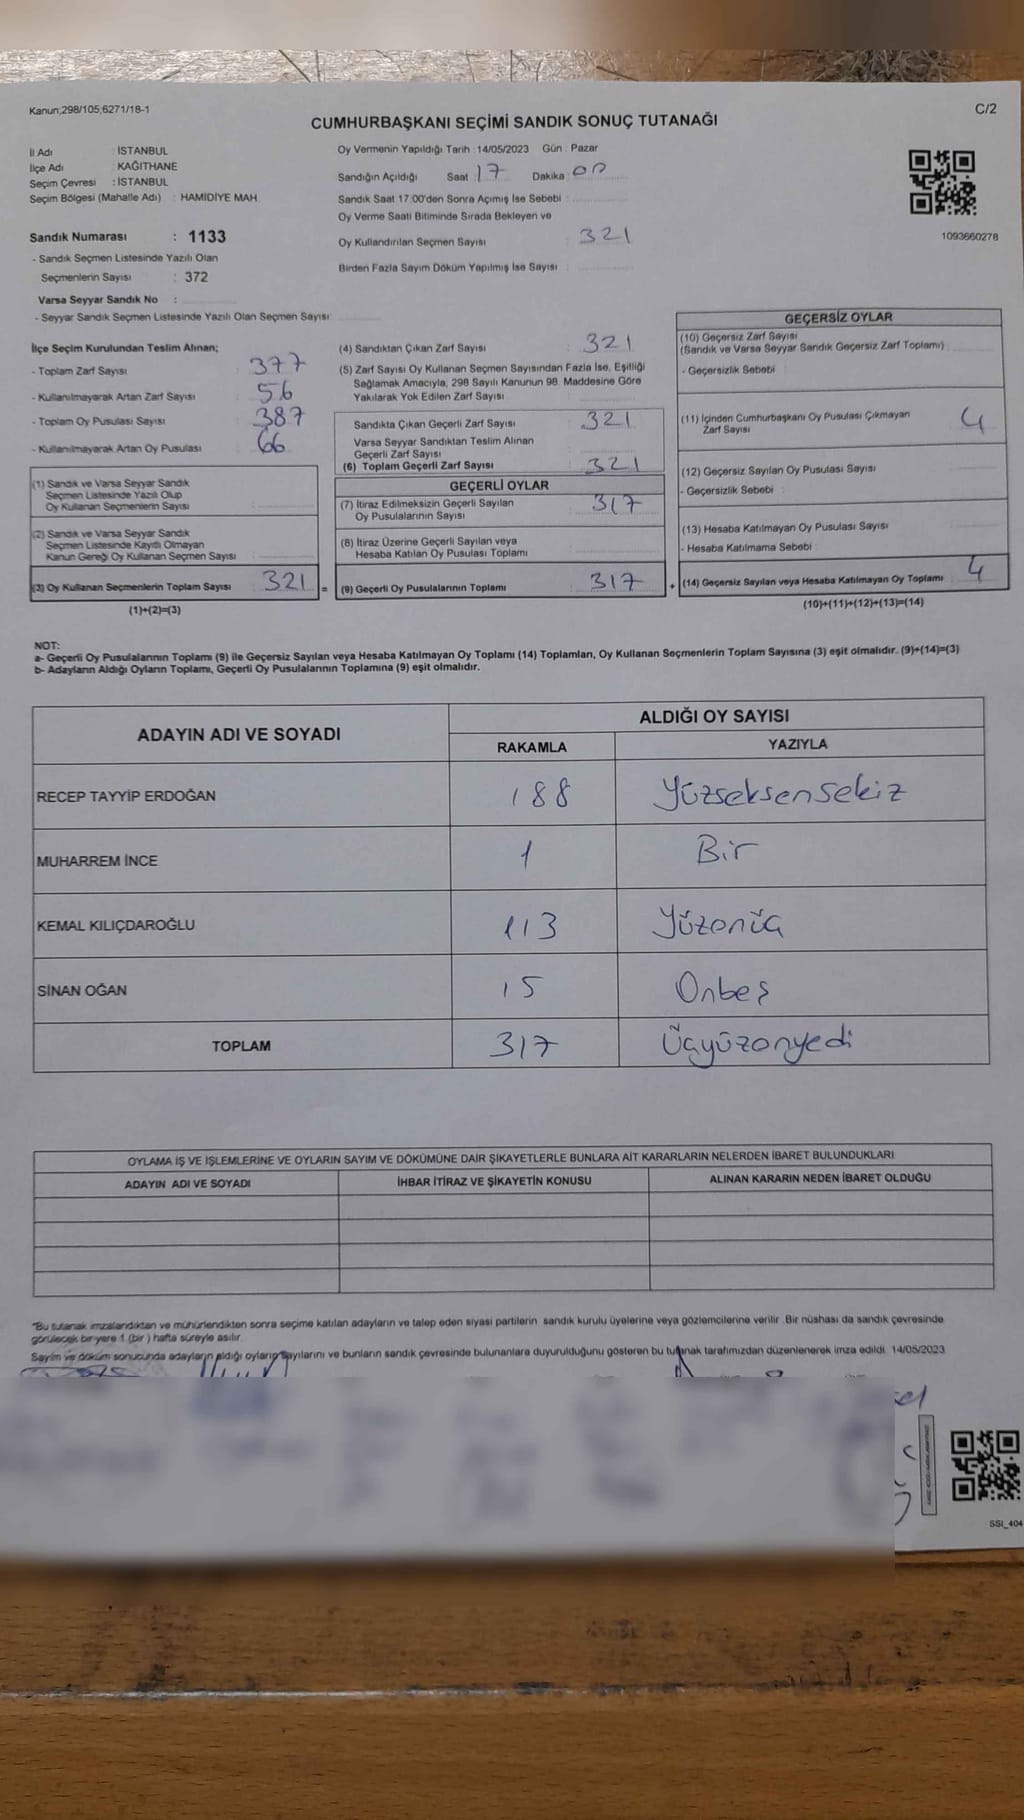 Kanun;298/105,6271/18-1
C/2
CUMHURBAŞKANI SEÇİMİ SANDIK SONUÇ TUTANAĞI
İl Adı : İSTANBUL
İlçe Adı : KAĞITHANE
Seçim Çevresi : İSTANBUL
Seçim Bölgesi (Mahalle Adı) : HAMİDİYE MAH.
Sandık Numarası : 1133
- Sandık Seçmen Listesinde Yazılı Olan
Seçmenlerin Sayısı : 372
Varsa Seyyar Sandık No :
- Seyyar Sandık Seçmen Listesinde Yazılı Olan Seçmen Sayısı:
Oy Vermenin Yapıldığı Tarih : 14/05/2023 Gün : Pazar
Sandığın Açıldığı Saat : 17 Dakika : 00
Sandık Saat 17:00'den Sonra Açımış İse Sebebi :
Oy Verme Saati Bitiminde Sırada Bekleyen ve
Oy Kullandırılan Seçmen Sayısı : 321
Birden Fazla Sayım Döküm Yapılmış İse Sayısı :
1093660278
İlçe Seçim Kurulundan Teslim Alınan;
- Toplam Zarf Sayısı : 377
- Kullanılmayarak Artan Zarf Sayısı : 56
- Toplam Oy Pusulası Sayısı : 387
- Kullanılmayarak Artan Oy Pusulası : 66
(1) Sandık ve Varsa Seyyar Sandık
Seçmen Listesinde Yazılı Olup
Oy Kullanan Seçmenlerin Sayısı :
(2) Sandık ve Varsa Seyyar Sandık
Seçmen Listesinde Kayıtlı Olmayan
Kanun Gereği Oy Kullanan Seçmen Sayısı :
(3) Oy Kullanan Seçmenlerin Toplam Sayısı : 321 =
(1)+(2)=(3)
(4) Sandıktan Çıkan Zarf Sayısı : 321
(5) Zarf Sayısı Oy Kullanan Seçmen Sayısından Fazla İse, Eşitliği
Sağlamak Amacıyla, 298 Sayılı Kanunun 98. Maddesine Göre
Yakılarak Yok Edilen Zarf Sayısı :
Sandıkta Çıkan Geçerli Zarf Sayısı : 321
Varsa Seyyar Sandıktan Teslim Alınan
Geçerli Zarf Sayısı :
(6) Toplam Geçerli Zarf Sayısı : 321
GEÇERLİ OYLAR
(7) İtiraz Edilmeksizin Geçerli Sayılan : 317
Oy Pusulalarının Sayısı
(8) İtiraz Üzerine Geçerli Sayılan veya
Hesaba Katılan Oy Pusulası Toplamı :
(9) Geçerli Oy Pusulalarının Toplamı : 317 +
GEÇERSİZ OYLAR
(10) Geçersiz Zarf Sayısı
(Sandık ve Varsa Seyyar Sandık Geçersiz Zarf Toplamı) :
- Geçersizlik Sebebi :
(11) İçinden Cumhurbaşkanı Oy Pusulası Çıkmayan
Zarf Sayısı : 4
(12) Geçersiz Sayılan Oy Pusulası Sayısı :
- Geçersizlik Sebebi :
(13) Hesaba Katılmayan Oy Pusulası Sayısı :
- Hesaba Katılmama Sebebi :
(14) Geçersiz Sayılan veya Hesaba Katılmayan Oy Toplamı : 4
(10)+(11)+(12)+(13)=(14)
NOT:
a- Geçerli Oy Pusulalarının Toplamı (9) ile Geçersiz Sayılan veya Hesaba Katılmayan Oy Toplamı (14) Toplamları, Oy Kullanan Seçmenlerin Toplam Sayısına (3) eşit olmalıdır. (9)+(14)=(3)
b- Adayların Aldığı Oyların Toplamı, Geçerli Oy Pusulalarının Toplamına (9) eşit olmalıdır.
ADAYIN ADI VE SOYADI
ALDIĞI OY SAYISI
RAKAMLA YAZIYLA
RECEP TAYYİP ERDOĞAN 188 Yüzseksensekiz
MUHARREM İNCE 1 Bir
KEMAL KILIÇDAROĞLU 113 Yüzonüç
SİNAN OĞAN 15 Onbeş
TOPLAM 317 Üçyüzonyedi
OYLAMA İŞ VE İŞLEMLERİNE VE OYLARIN SAYIM VE DÖKÜMÜNE DAİR ŞİKAYETLERLE BUNLARA AİT KARARLARIN NELERDEN İBARET BULUNDUKLARI
ADAYIN ADI VE SOYADI İHBAR İTİRAZ VE ŞİKAYETİN KONUSU ALINAN KARARIN NEDEN İBARET OLDUĞU
"Bu tutanak imzalandıktan ve mühürlendikten sonra seçime katılan adayların ve talep eden siyasi partilerin sandık kurulu üyelerine veya gözlemcilerine verilir. Bir nüshası da sandık çevresinde
görülecek bir yere 1 (bir ) hafta süreyle asılır.
Sayım ve döküm sonucunda adayların aldığı oyların sayılarını ve bunların sandık çevresinde bulunanlara duyurulduğunu gösteren bu tutanak tarafımızdan düzenlenerek imza edildi. 14/05/2023
SSI_404